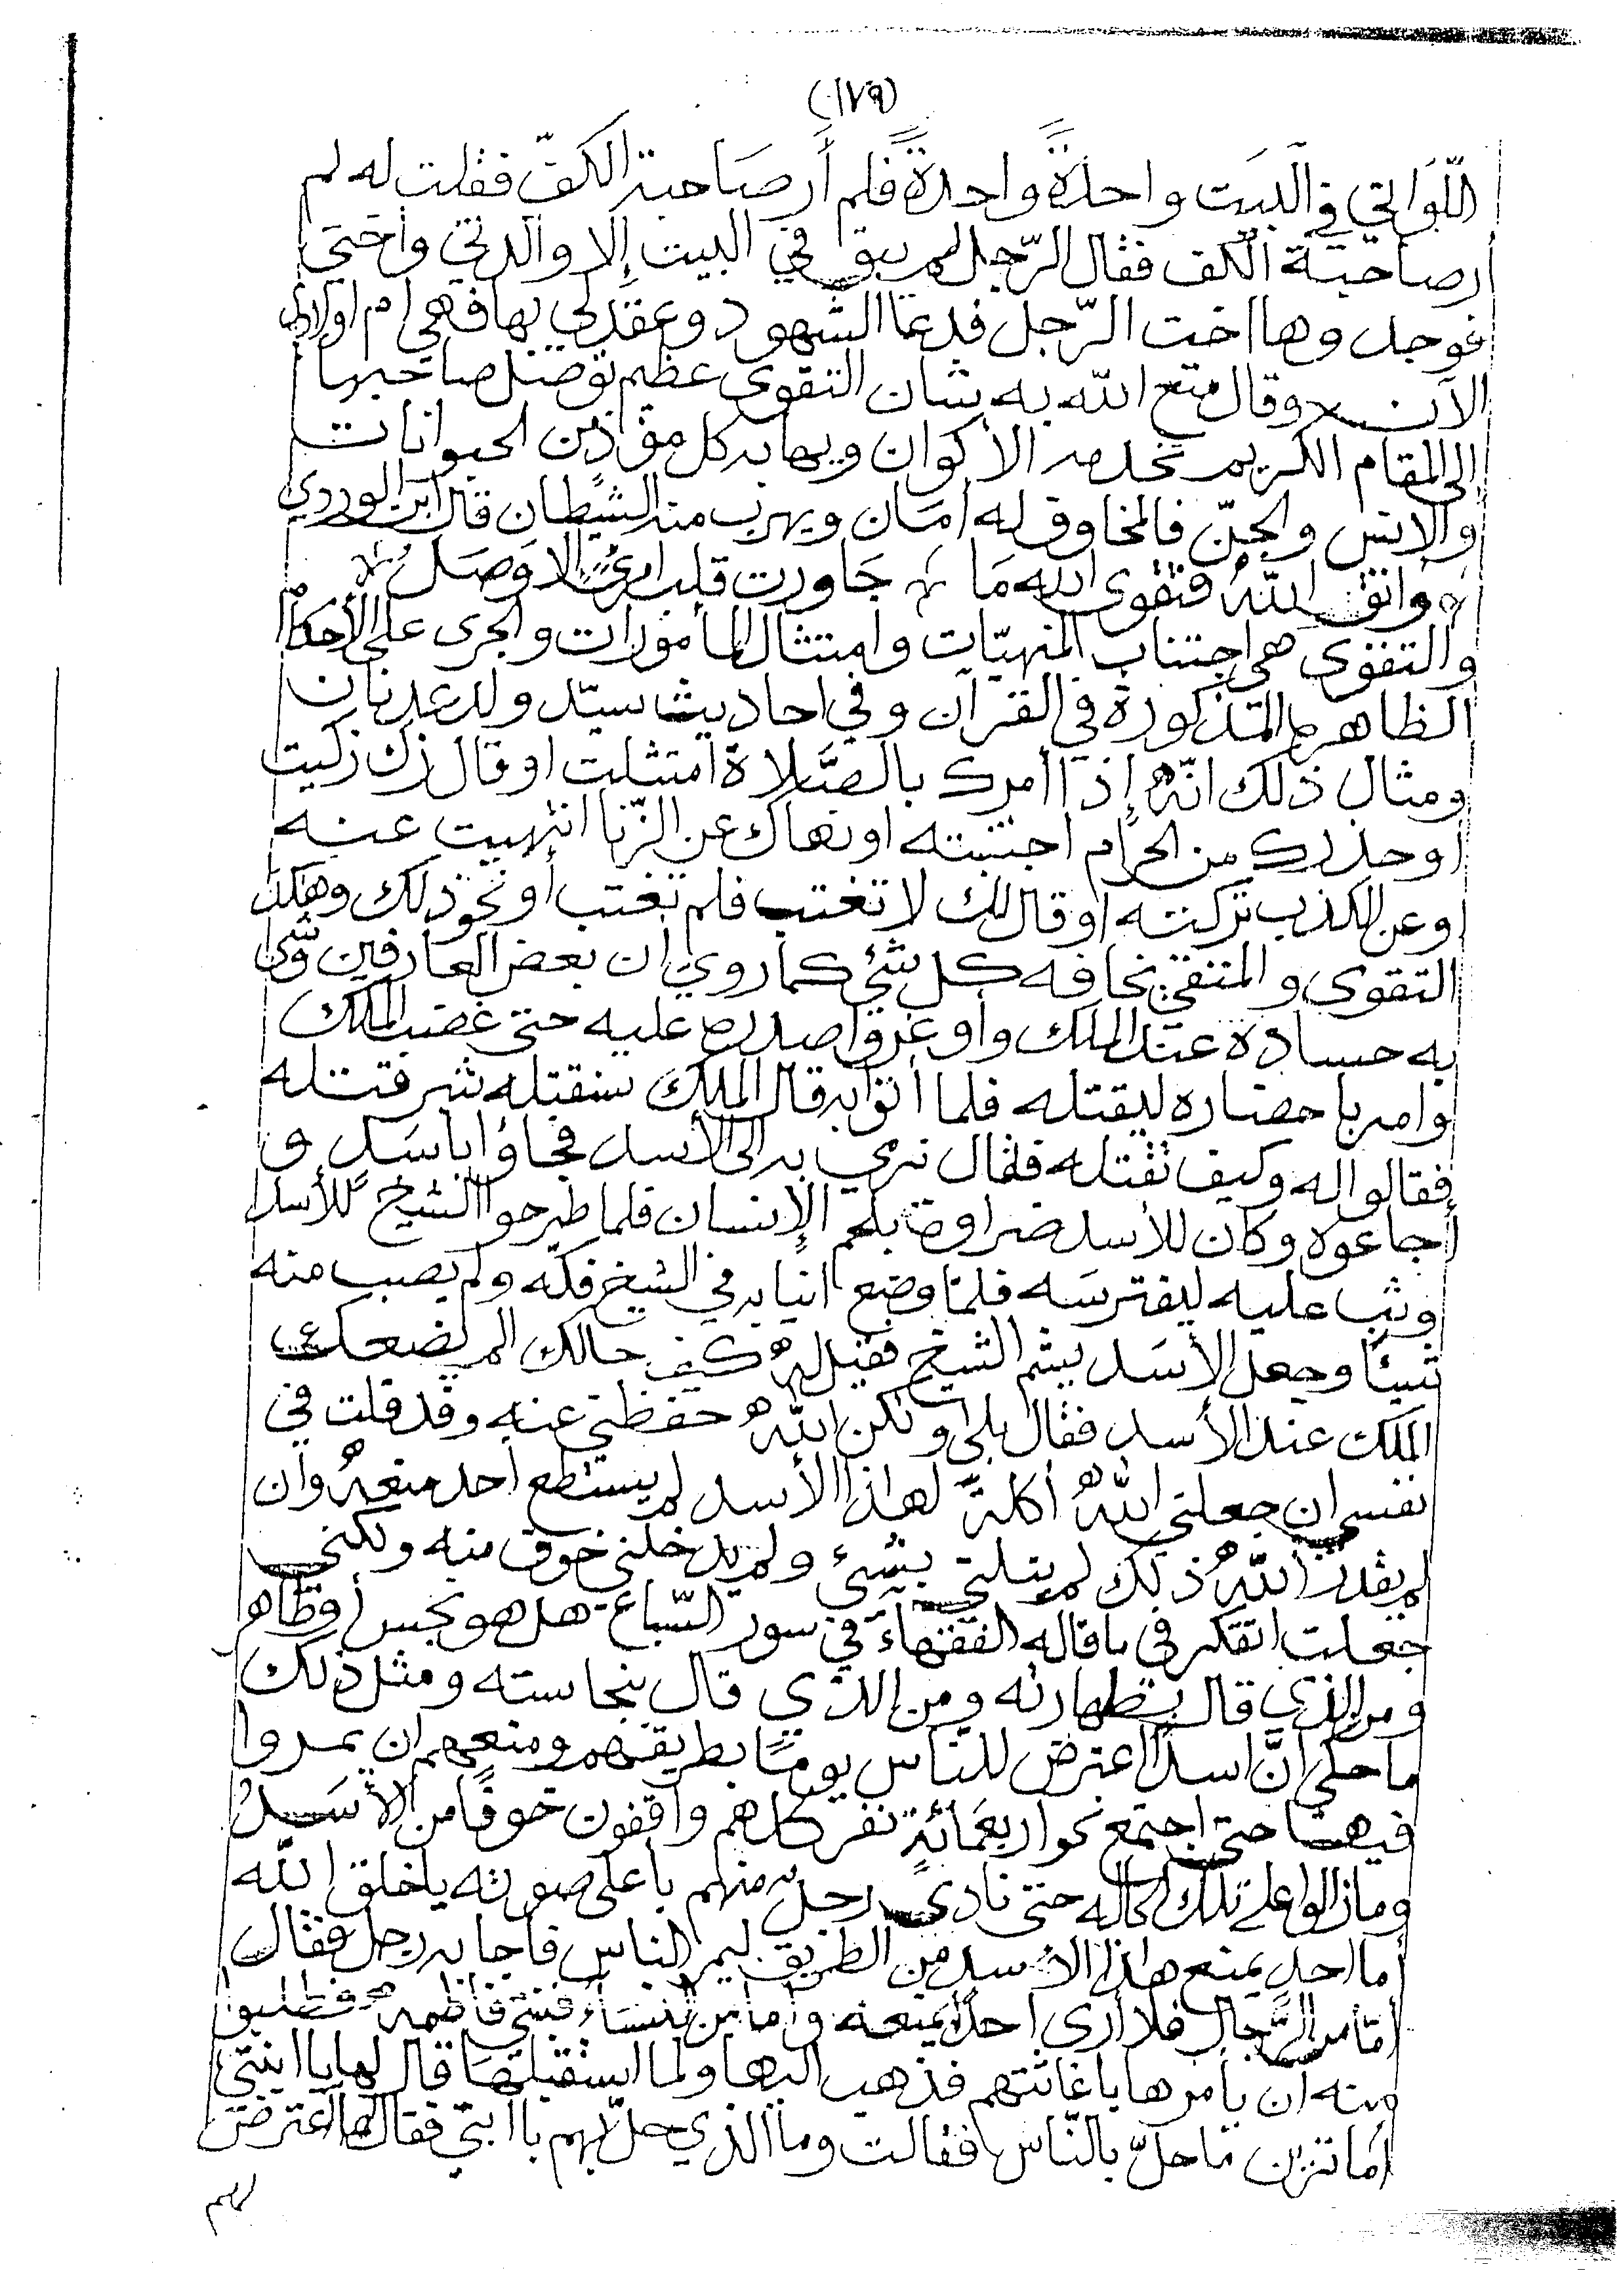 (١٧٩)
اللّواتي في البيت واحدة واحدة فلم أر صاحبة الكفّ فقلت له لم
أر صاحبة الكف فقال الرّجل لم يبق في البيت إلا والدتي وأختي
فوجدوها اخت الرّجل فدعا الشّهود وعقد لي بها فهي ام اولادي
الآن وقال متع الله به شان التقوى عظيم توصل صاحبها
الى المقام الكريم تخدمه الأكوان ويهابه كل مؤذ من الحيوانات
والانس والجنّ فالمخاوف له أمان ويهرب منه الشيطان قال ابن الوردي
واتق اللّه فتقوى الله ما جاورت قلب امرئ إلا وصل
والتقوى هي اجتناب المنهيّات وامتثال المأمورات والجرى على الأحكام
الظاهرة المذكورة في القرآن وفي احاديث سيّد ولد عدنان
ومثال ذلك انّه إذا أمرك بالصّلاة امتثلت او قال زك زكيت
او حذرك من الحرام اجتنبته او نهاك عن الزّنا انتهيت عنه
او عن الكذب تركته او قال لك لا تغتب فلم تغتب أو نحو ذلك وهكذا
التقوى والمتقي تخافه كل شئ كما روي ان بعض العارفين وشى
به حسادة عند الملك وأوغروا صدره عليه حتى غضب الملك
وامر باحضاره ليقتله فلما أتوا به قال الملك سنقتله شر قتله
فقالوا له وكيف نقتله فقال نرمي به الى الأسد فجاؤا باسد و
أجاعوه وكان للأسد ضراوة بلحم الإنسان فلما طرحوا الشيخ للأسد
وثب عليه ليفترسه فلمّا وضع انيابه في الشيخ فكه ولم يصب منه
شيئا وجعل الأسد يشم الشيخ فقيل له كيف حالك الم يضعك
الملك عند الأسد فقال بلى ولكن اللّه حفظني عنه وقد قلت في
نفسي ان جعلني اللّه أكلة لهذا الأسد لم يستطع أحد منعه وان
لم يقدر اللّه ذلك لم ينلني بشئ ولم يدخلني خوف منه ولكني
جعلت اتفكر في ما قاله الفقهاء في سور السّباع هل هو نجس أو طاهر
ومن الذي قال بطهارته ومن الذي قال بنجاسته ومثل ذلك
ما حكي انّ اسدًا اعترض للناس يومًا بطريقهم ومنعهم ان يمروا
فيها حتى اجتمع نحو اربعمائة نفر كلهم واقفون خوفًا من الأسد
وما زالوا على تلك الحاله حتى نادى رجل منهم بأعلى صوته يا خلق الله
أما احد يمنع هذا الأسد من الطريق ليمر الناس فأجابه رجل فقال
أمّا من الرّجال فلا أرى احدًا يمنعه وأما من النساء فبنتي فاطمه فطلبوا
منه أن يأمرها باغاثتهم فذهب اليها ولما استقبلتها قال لها يا ابنتي
أما ترين ما حلّ بالنّاس فقالت وما الذي حلّ بهم يا ابتي فقال لها اعترض
لهم